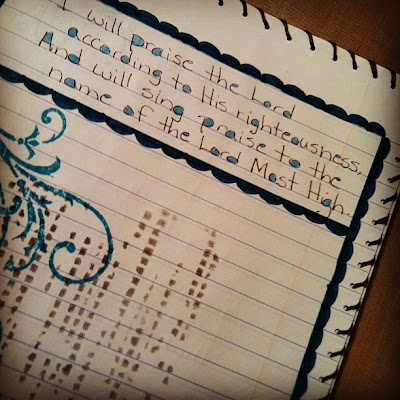 I will praise the Lord
according to His righteousness,
And will sing praise to the
name of the Lord Most High.